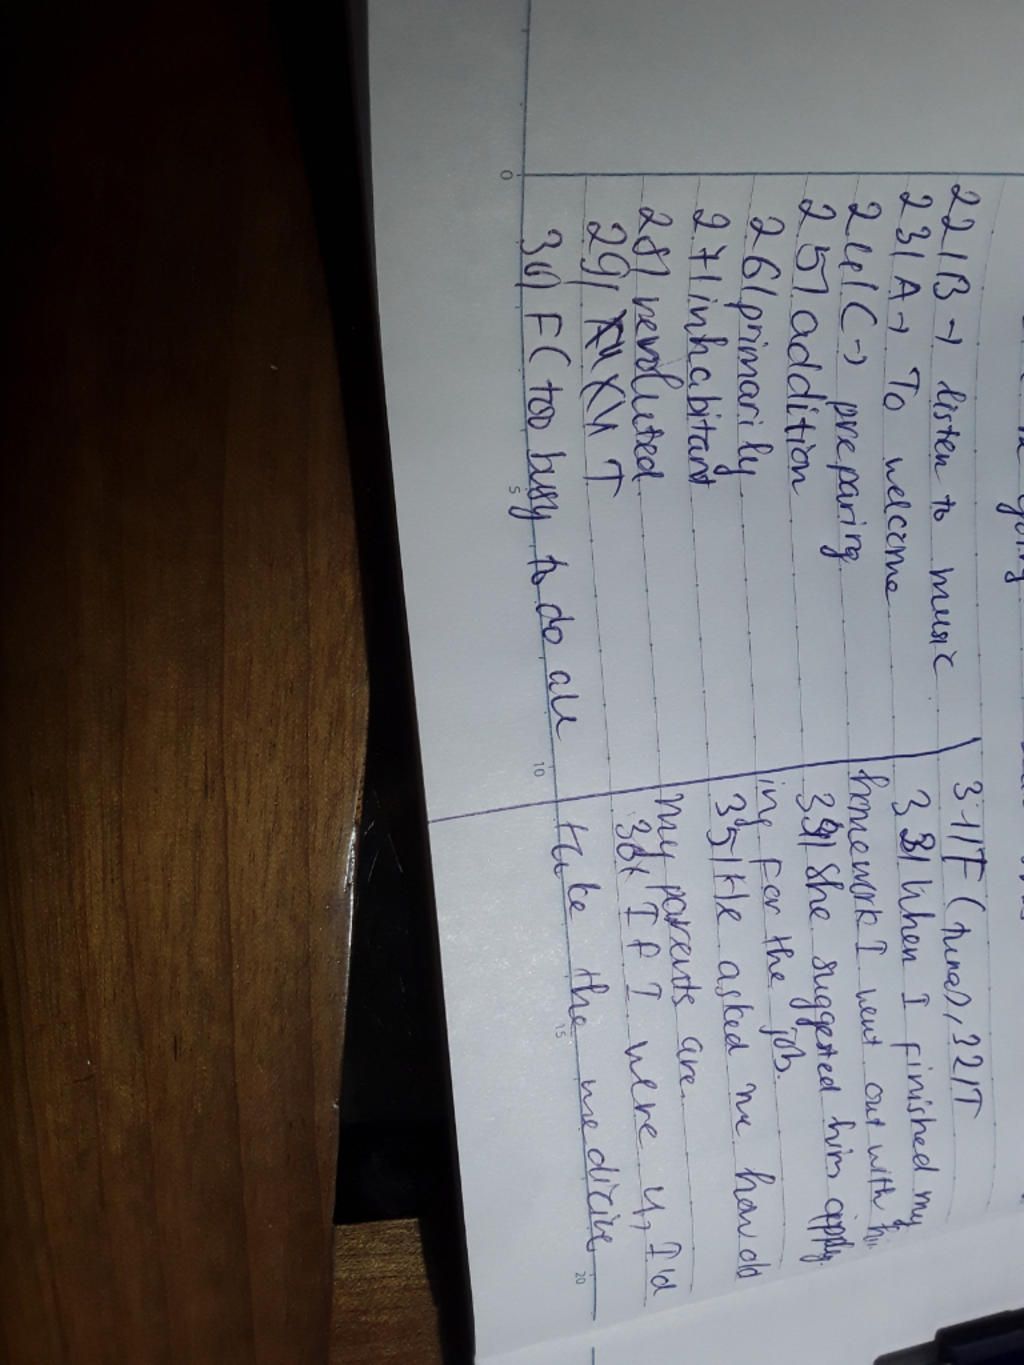 22/ B → listen to music
23/ A → To welcome
24/ C → preparing
25/ addition
26/ primarily
27/ inhabitant
28/ revoluted
29/ T
30/ F ( too busy to do all
31/ F ( ), 32/ T
33/ When I finished my
homework I went out with
34/ She suggested him apply
ing for the job.
35/ He asked me how old
my parents are.
36/ If I were u, I'd
take the medicine
0
5
10
15
20